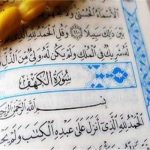 بَيْنَ ذَٰلِكَ سَبِيلًا ﴿١١٠﴾ وَقُلِ الْحَمْدُ لِلَّهِ
شَرِيكٌ فِي الْمُلْكِ وَلَمْ يَكُن لَّهُ وَلِيٌّ مِّنَ الذُّلِّ
سُورَةُ الْكَهْفِ
بِسْمِ اللَّهِ الرَّحْمَٰنِ الرَّحِيمِ
الْحَمْدُ لِلَّهِ الَّذِي أَنزَلَ عَلَىٰ عَبْدِهِ الْكِتَٰبَ وَلَمْ